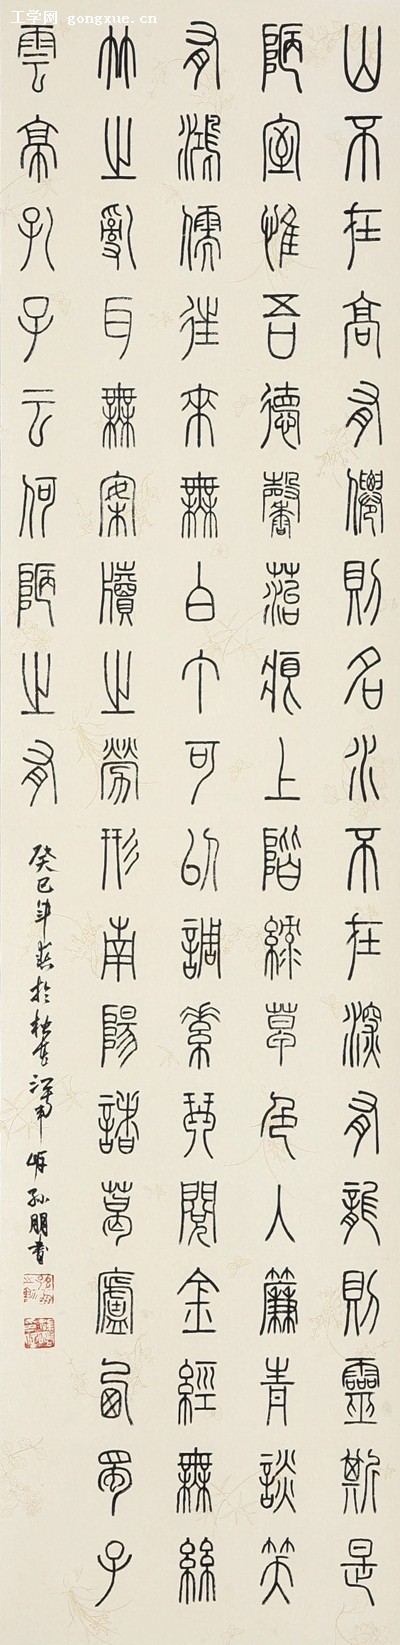 工学网 gongxue.cn
山不在高有僊則名水不在深有龍則靈斯是
陋室惟吾德馨菭痕上階綠草色入簾青談笑
有鴻儒往來無白丁可以調素琴閱金經無絲
竹之亂耳無案牘之勞形南陽諸葛廬西蜀子
雲亭孔子云何陋之有
癸巳年於江南孫朋書